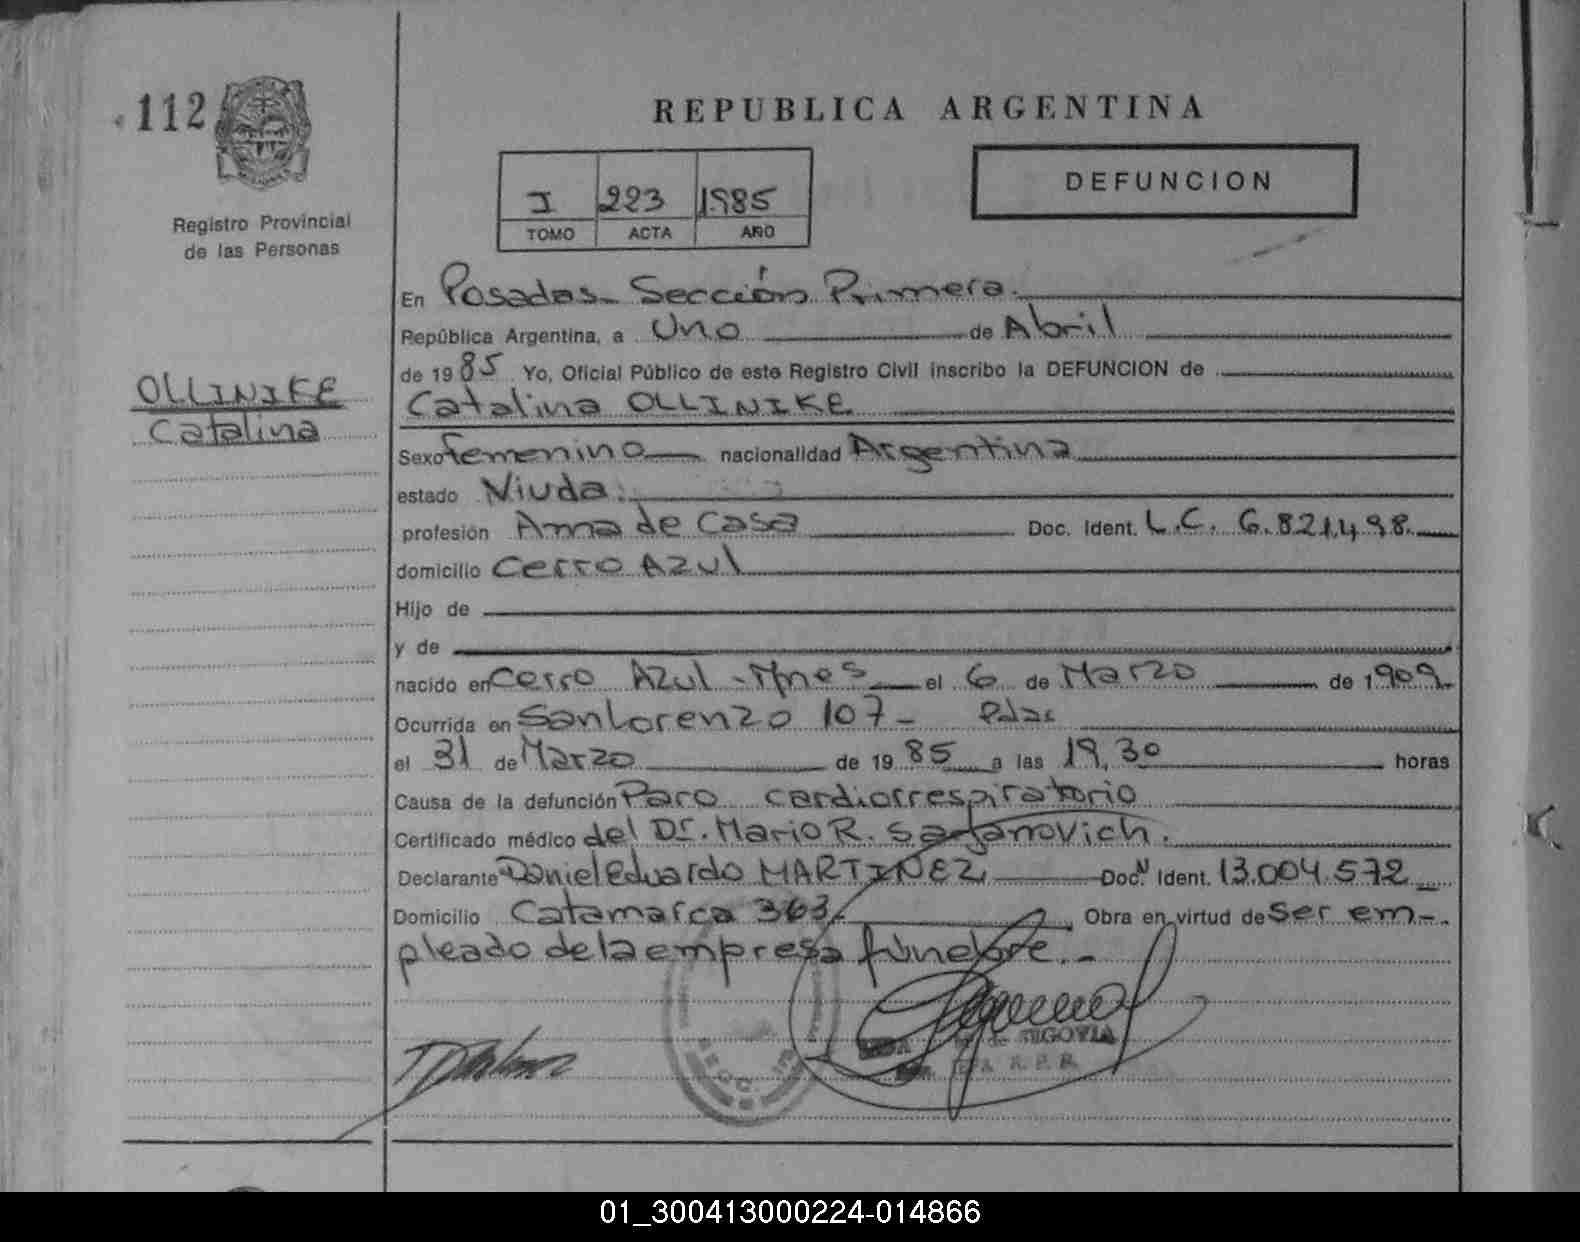 112
REPUBLICA ARGENTINA
DEFUNCION
I 223 1985
TOMO ACTA AÑO
Registro Provincial
de las Personas
En Posadas - Sección Primera.
República Argentina, a Uno de Abril
de 1985 Yo, Oficial Público de este Registro Civil inscribo la DEFUNCION de
OLLINIKE
Catalina OLLINIKE
Catalina
Sexo femenino nacionalidad Argentina
estado Viuda.
profesión Ama de Casa Doc. Ident. L.C. 6.821.498.
domicilio Cerro Azul
Hijo de
y de
nacido en Cerro Azul - Mnes el 6 de Marzo de 1909
Ocurrida en San Lorenzo 107 - Pdas
el 31 de Marzo de 1985 a las 19,30 horas
Causa de la defunción Paro cardiorrespiratorio
Certificado médico del Dr. Mario R.
Declarante Daniel Eduardo MARTINEZ Doc. Ident. 13.004.572
Domicilio Catamarca 363. Obra en virtud de Ser em-
pleado de la empresa fúnebre.-
de SEGOVIA
R. P. P.
01_300413000224-014866